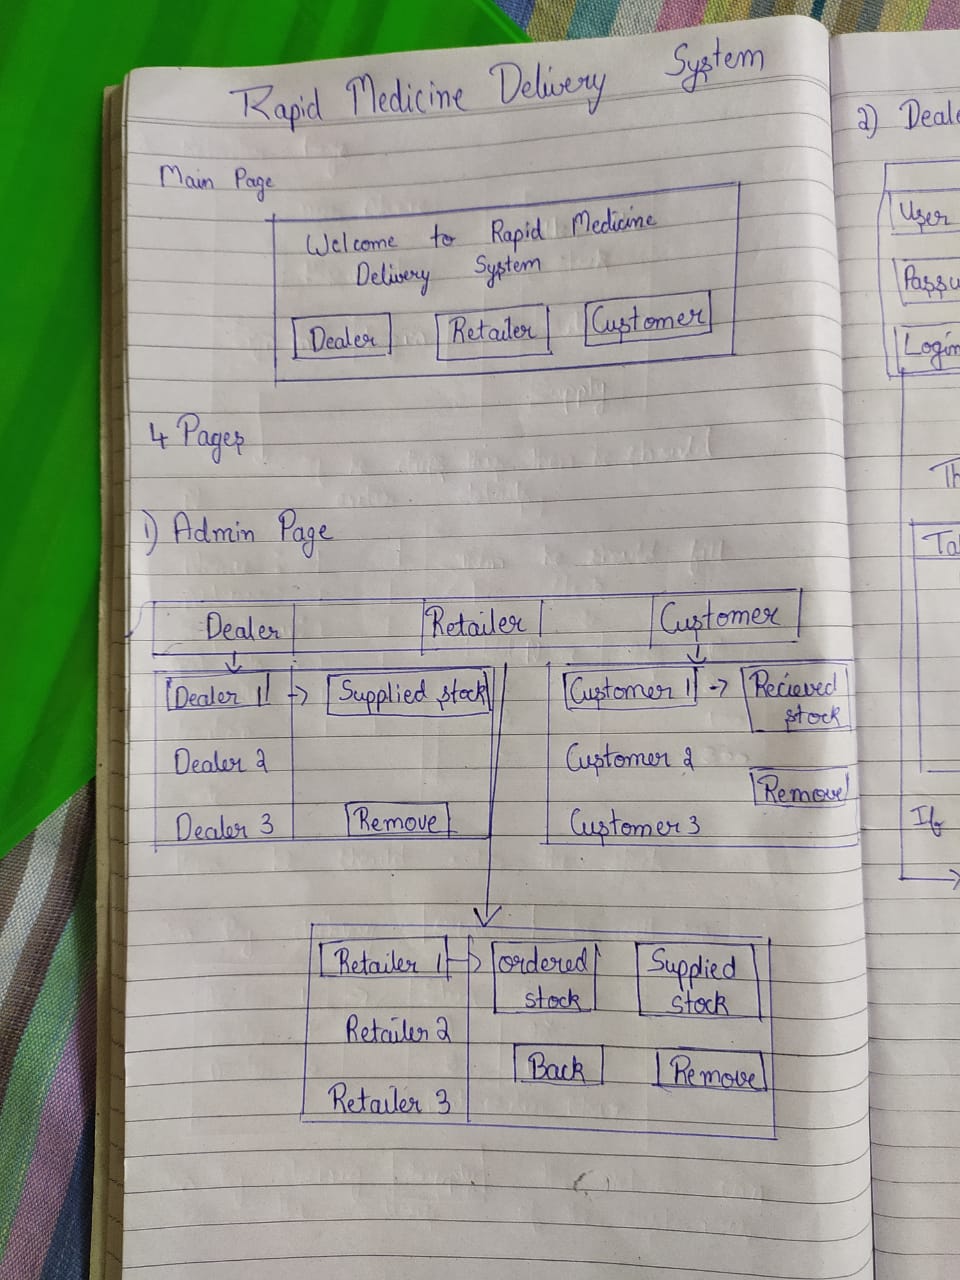 Rapid Medicine Delivery System
Main Page
Welcome to Rapid Medicine
Delivery System
Dealer Retailer Customer
4 Pages
1) Admin Page
Dealer Retailer Customer
Dealer 1 → Supplied stock
Dealer 2
Dealer 3 Remove
Customer 1 → Recieved
stock
Customer 2
Remove
Customer 3
Retailer 1 → ordered Supplied
stock stock
Retailer 2
Back Remove
Retailer 3
2) Deale
User
Passw
Login
Th
Ta
If